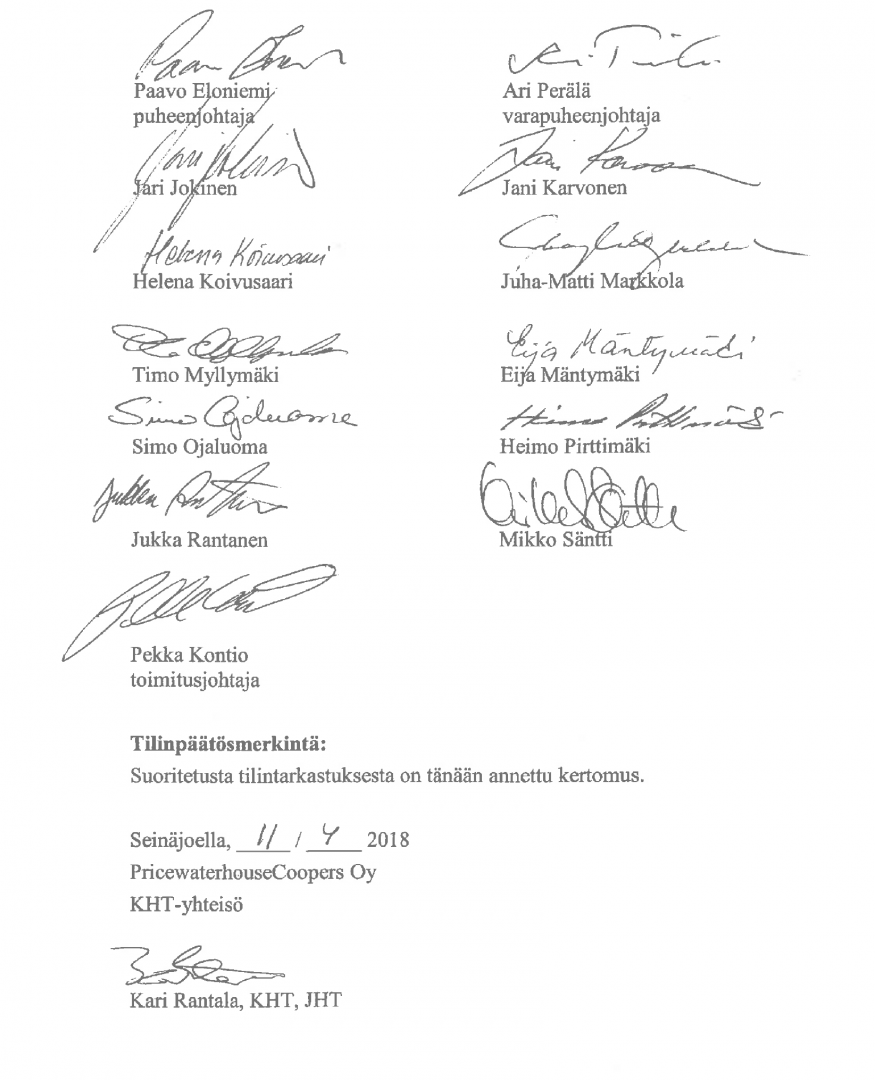 Paavo Eloniemi Ari Perälä
puheenjohtaja varapuheenjohtaja
Jari Jokinen Jani Karvonen
Helena Koivusaari
Helena Koivusaari Juha-Matti Markkola
Eija Mäntymäki
Timo Myllymäki Eija Mäntymäki
Simo Ojaluoma Heimo Pirttimäki
Simo Ojaluoma Heimo Pirttimäki
Jukka Rantanen Mikko Säntti
Pekka Kontio
toimitusjohtaja
Tilinpäätösmerkintä:
Suoritetusta tilintarkastuksesta on tänään annettu kertomus.
Seinäjoella, 11 / 4 2018
PricewaterhouseCoopers Oy
KHT-yhteisö
Kari Rantala, KHT, JHT